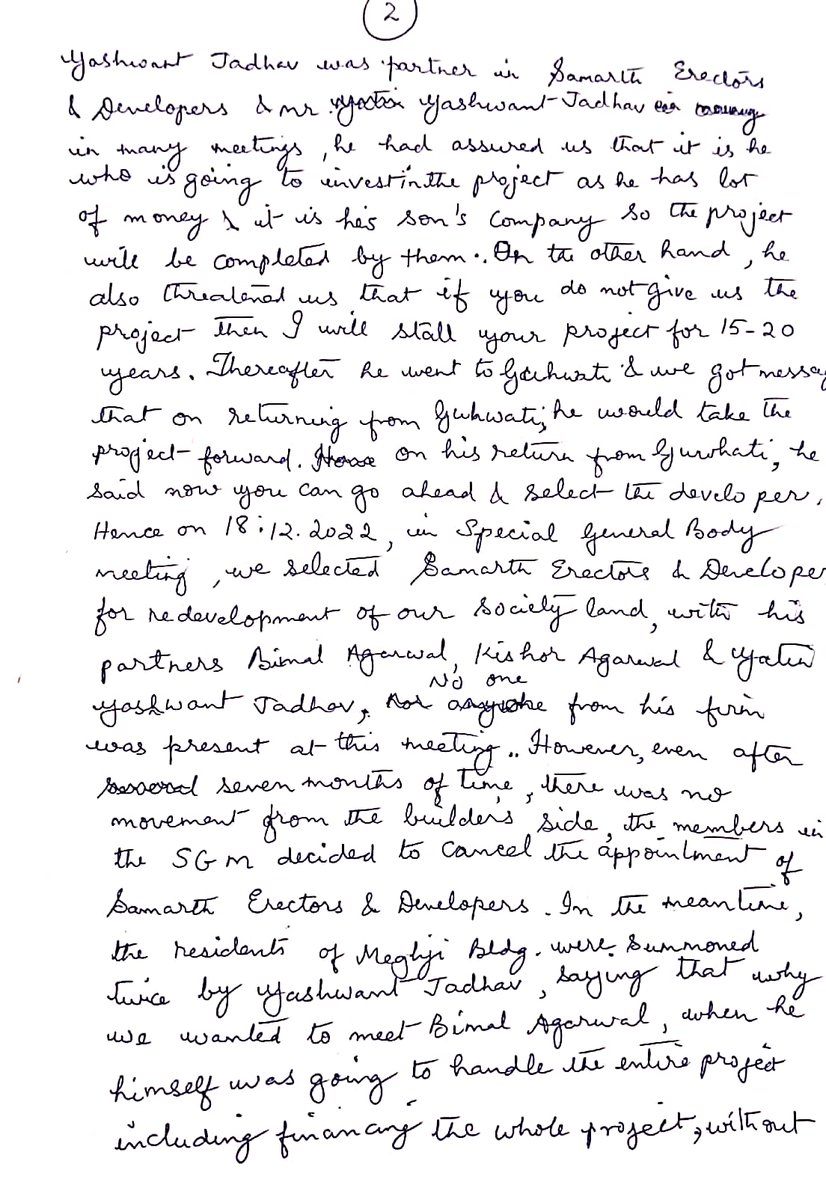 2
Yashwant Jadhav was partner in Samarth Erectors
& Developers & mr. Yashwant Jadhav
in many meetings, he had assured us that it is he
who is going to invest in the project as he has lot
of money & it is his son's company so the project
will be completed by them. On the other hand, he
also threatened us that if you do not give us the
project then I will stall your project for 15-20
years. Thereafter he went to Guhwati & we got messag
that on returning from Guhwati, he would take the
project forward. on his return from Guwhati, he
said now you can go ahead & select the developer.
Hence on 18.12.2022, in Special General Body
meeting, we selected Samarth Erectors & Develope
for redevelopment of our Society land, with his
partners Bimal Agarwal, Kishor Agarwal & Yatin
No one
Yashwant Jadhav. from his firm
was present at this meeting.. However, even after
seven months of time, there was no
movement from the builders side, the members in
the SGM decided to cancel the appointment of
Samarth Erectors & Developers. In the meantime,
the residents of Meghji Bldg. were summoned
twice by Yashwant Jadhav, saying that why
we wanted to meet Bimal Agarwal, when he
himself was going to handle the entire project
including financing the whole project, without